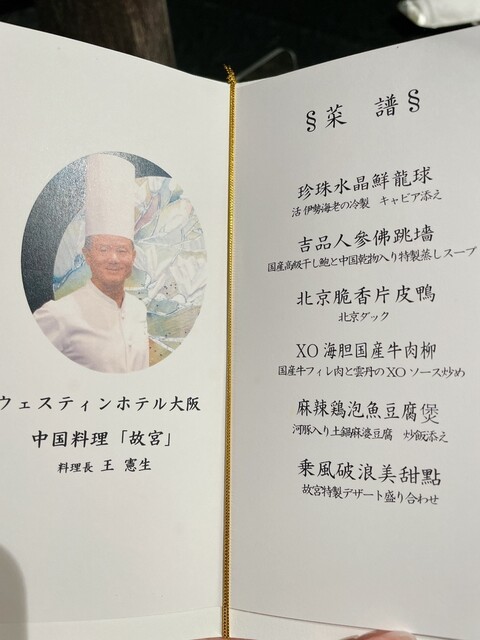 ウェスティンホテル大阪
中国料理「故宮」
料理長 王 憲生
§菜 譜§
珍珠水晶鮮龍球
活伊勢海老の冷製 キャビア添え
吉品人参佛跳墻
国産高級干し鮑と中国乾物入り特製蒸しスープ
北京脆香片皮鴨
北京ダック
XO海胆国産牛肉柳
国産牛フィレ肉と雲丹のXOソース炒め
麻辣鶏泡魚豆腐煲
河豚入り土鍋麻婆豆腐 炒飯添え
乗風破浪美甜點
故宮特製デザート盛り合わせ